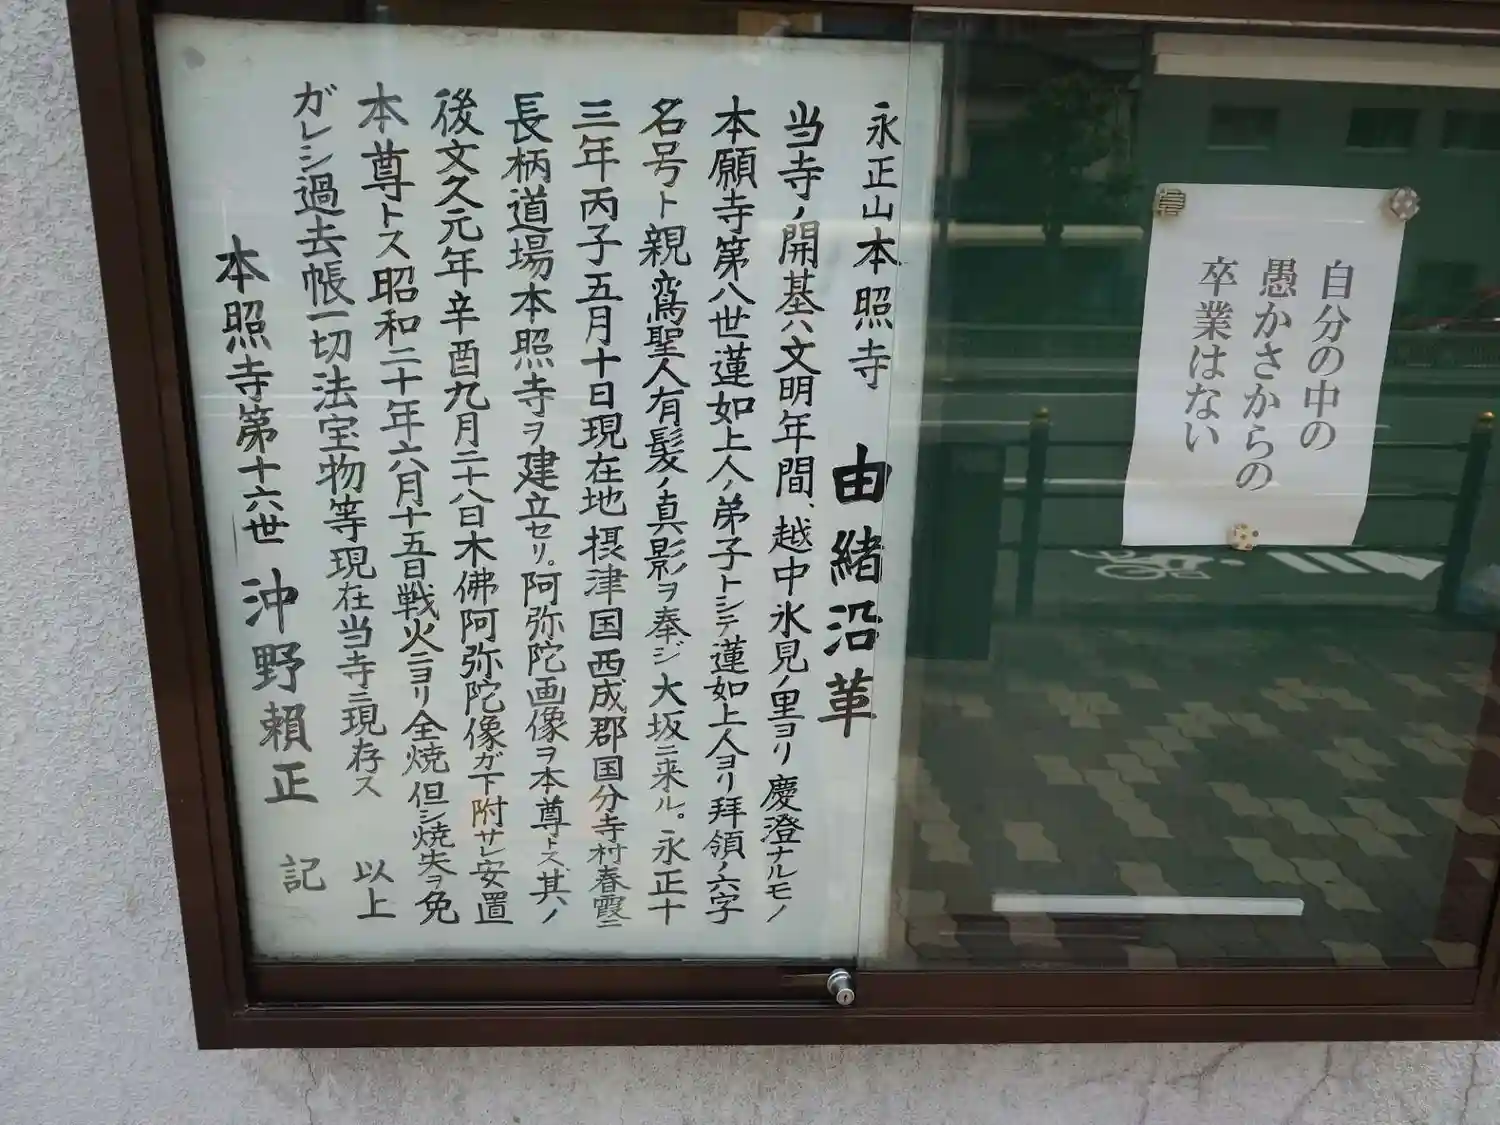 永正山本照寺 由緒沿革
当寺ノ開基ハ文明年間、越中氷見ノ里ヨリ慶澄ナルモノ
本願寺第八世蓮如上人ノ弟子トシテ蓮如上人ヨリ拜領ノ六字
名号ト親鸞聖人有髪ノ真影ヲ奉ジ大坂ニ来ル。永正十
三年丙子五月十日現在地摂津国西成郡国分寺村春霞ニ
長柄道場本照寺ヲ建立セリ。阿弥陀画像ヲ本尊トス其ノ
後文久元年辛酉九月二十八日木佛阿弥陀像ガ下附サレ安置
本尊トス昭和二十年六月十五日戦火ニヨリ全焼但シ焼失ヲ免
ガレシ過去帳一切法宝物等現在当寺ニ現存ス 以上
本照寺第十六世 沖野賴正 記
自分の中の
愚かさからの
卒業はない